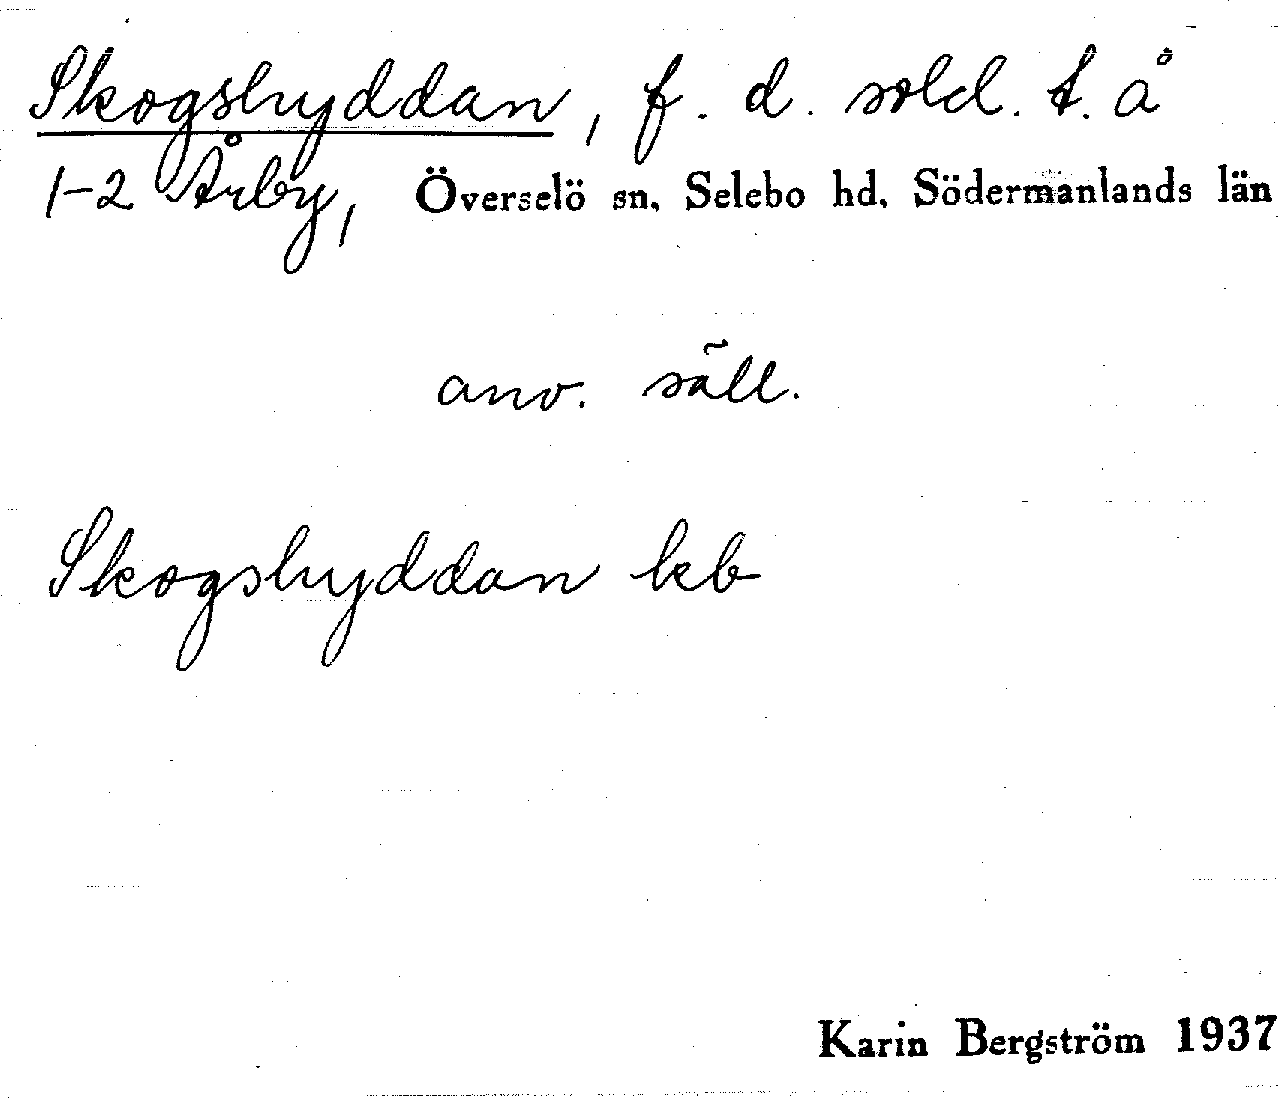 Skogshyddan, f. d. sold. t. å
1-2 Årby, Överselö sn, Selebo hd, Södermanlands län
anv. säll.
Skogshyddan kb
Karin Bergström 1937